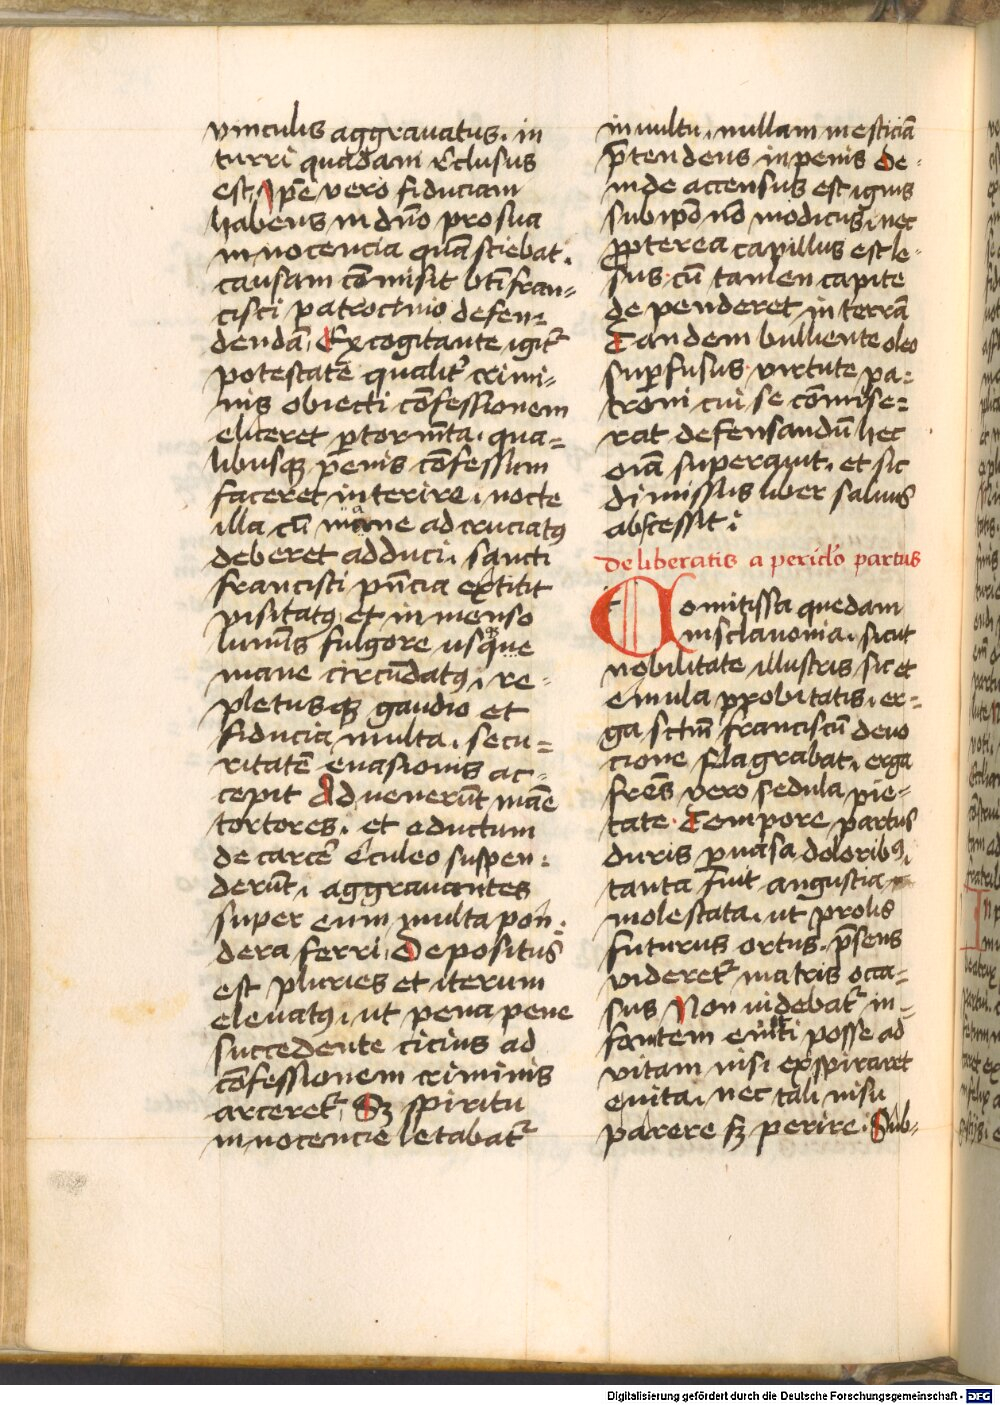 vinculis aggrauatus. in
turri quadam reclusus
est Ip̄e vero fiduciam
habens in dn̄o pro sua
innocencia quā sciebat.
causam cōmisit bt̄i fran-
cisci patrocinio defen-
dendā. Excogitante igit̄
potestatē qualit̄ crimi-
nis obiecti cōfessionem
eliceret ꝑ torm̄ta. qua-
libusqꝫ penis cōfessum
faceret interire. nocte
illa cū mane ad cruciatꝰ
deberet adduci. sancti
francisci pn̄cia extitit
visitatꝰ et inmenso
lumīs fulgore usqꝫ
mane circūdatꝰ. re-
pletusqꝫ gaudio et
fiducia multa. secu-
ritatē euasionis ac-
cepit Aduenerūt mane
tortores. et eductum
de carcē eculeo suspen-
derūt. aggrauantes
super eum multa pon-
dera ferri. Depositus
est pluries et iterum
eleuatꝰ. ut pena pene
succedente cicius ad
cōfessionem criminis
arceret̄. Sꝫ spiritu
innocencie letabat̄
in uultu. nullam mesticiā
p̄tendens in penis De-
inde accensus est ignis
sub ip̄o nō modicus. nec
ꝓpterea capillus est le-
sus cū tamen capite
de penderet in terrā
Tandem bulliente oleo
suꝑfusus virtute pa-
troni cui se cōmise-
rat defensandū hec
oīa superauit. et sic
dimissus liber saluus
abscessit.
De liberatis a pericl̄o partus
Comitissa quedam
in sclauonia. sicut
nobilitate illustris sic et
emula probitatis. er-
ga sctm̄ franciscū deuo
cione flagrabat. erga
frēs vero sedula pie-
tate. Tempore partus
duris ꝑuasa doloribꝰ.
tanta fuit angustia
molestata. ut prolis
futurus ortus. p̄sens
videret̄ matris occa-
sus Non uidebat̄ in-
fantem eniti posse ad
vitam nisi exspiraret
enita. nec tali nisu
parere sꝫ perire. Sub-